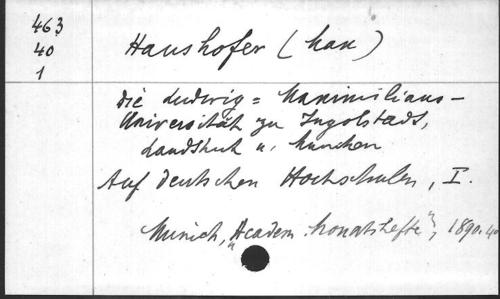 463
40
1
Haushofer (Max)
Die Ludwig = Maximilians-
Universität zu Ingolstadt,
Landshut u. München
Auf deutschen Hochschulen, I.
Munich, „Academ. Monatshefte", 1890. 40